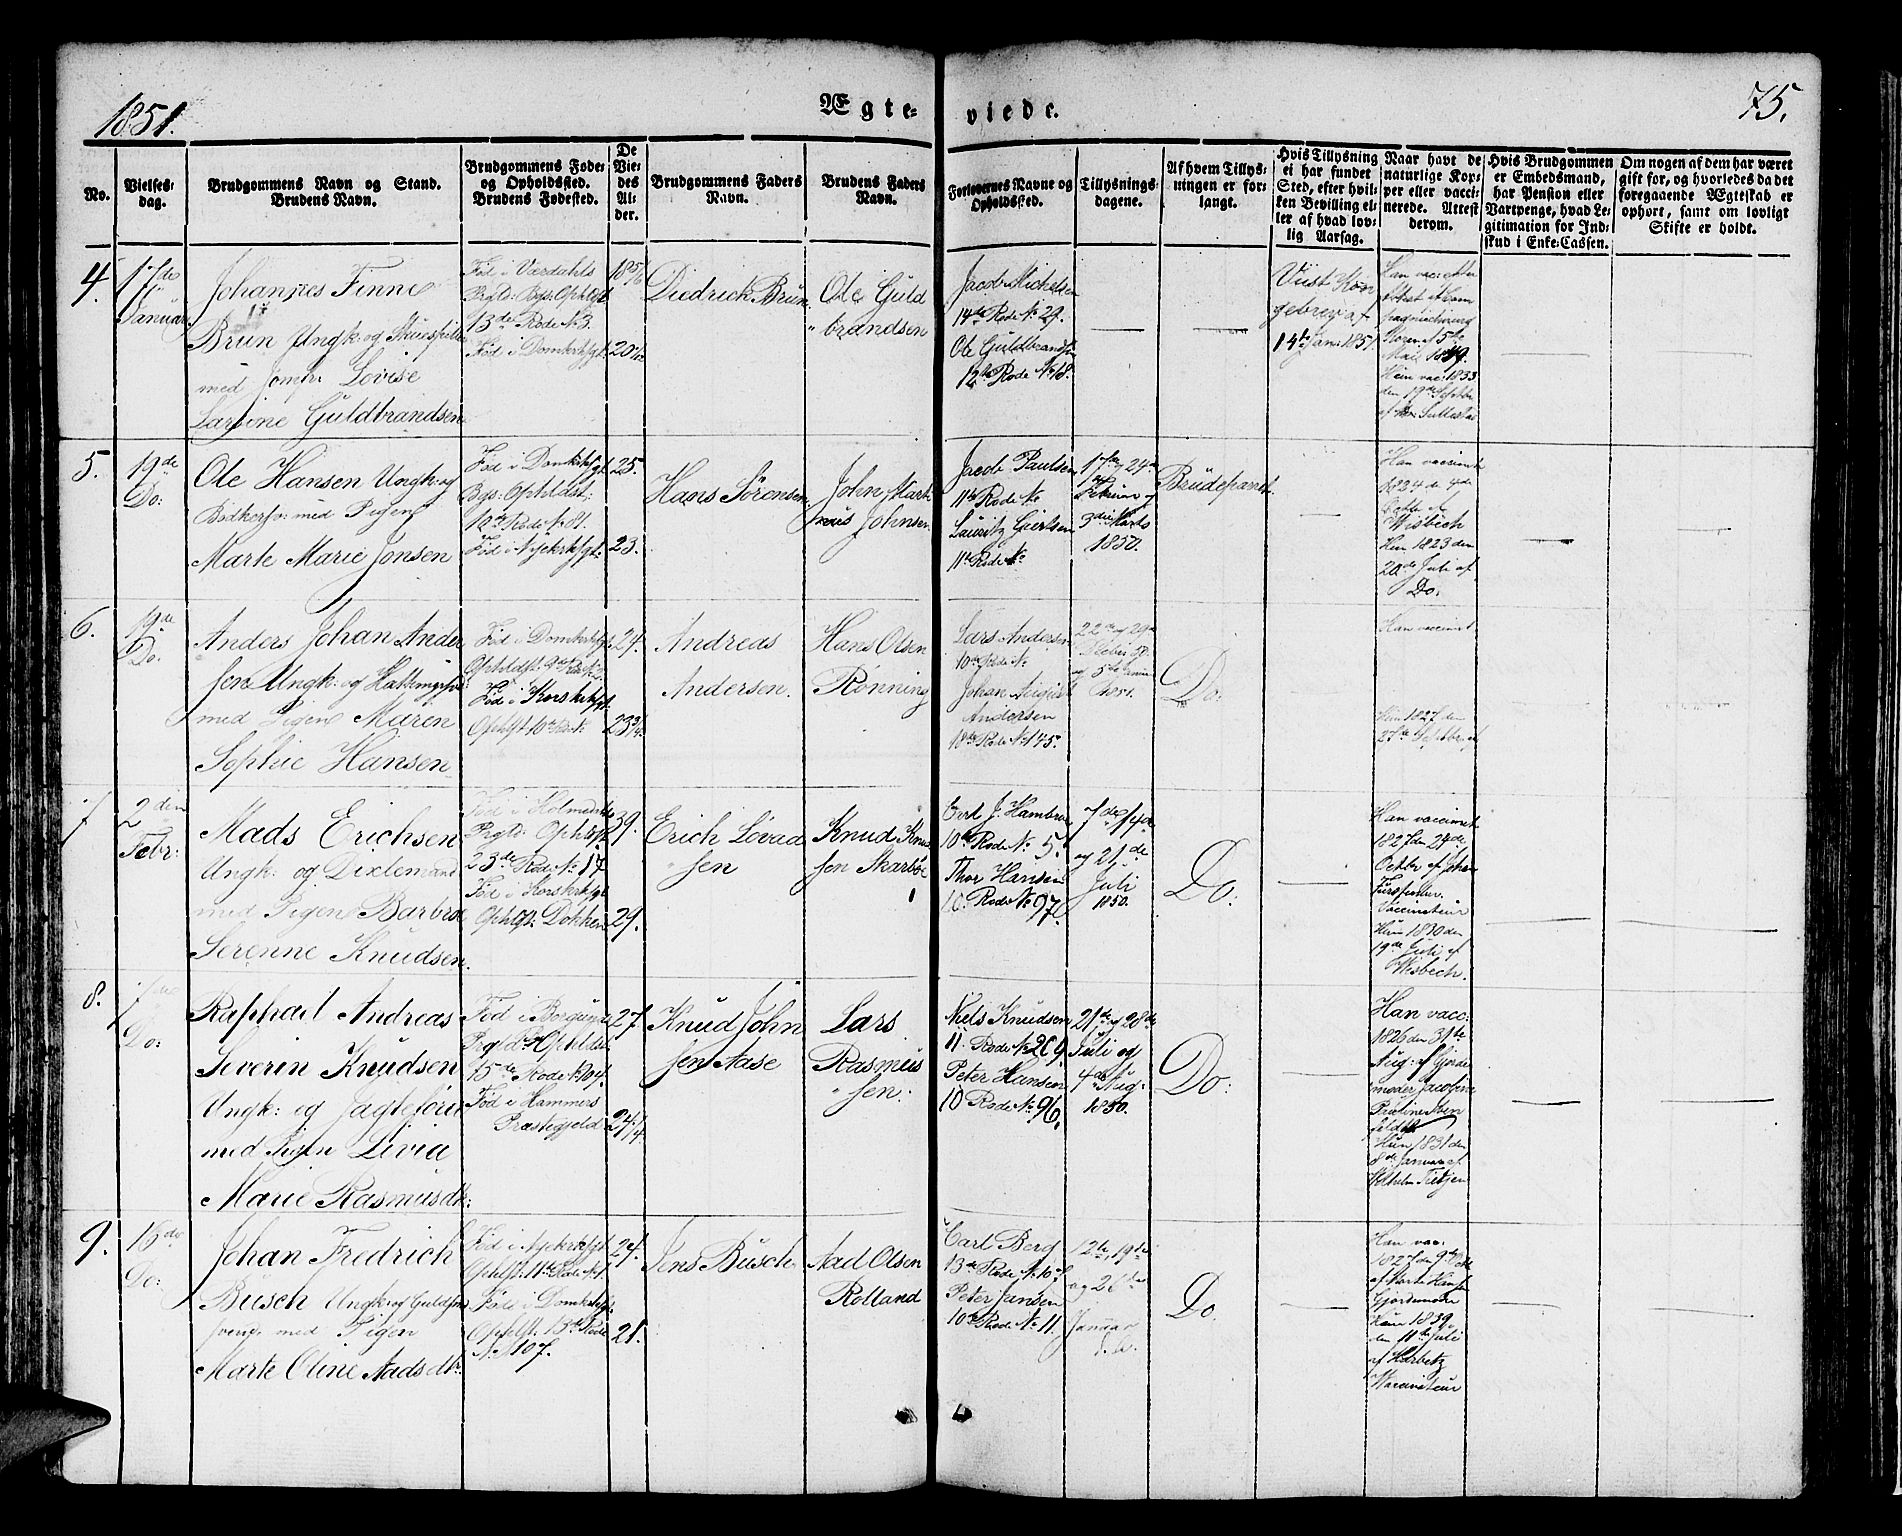 1851.
Ægte-
viede.
75.
No.
Vielses-
dag.
Brudgommens Navn og Stand.
Brudens Navn.
Brudgommens Føde-
og Opholdssted.
Brudens Fødested.
De
Vie-
des
Al-
der.
Brudgommens Faders
Navn.
Brudens Faders
Navn.
Forlovernes Navne og
Opholdssted.
Tillysnings-
dagene.
Af hvem Tillys-
ningen er for-
langt.
Hvis Tillysning
ei har fundet
Sted, efter hvil-
ken Bevilling el-
ler af hvad lov-
lig Aarsag.
Naar havt de
naturlige Kop-
per eller vacci-
nerede. Attest
derom.
Hvis Brudgommen
er Embedsmand,
har Pension eller
Vartpenge, hvad Le-
gitimation for Ind-
skud i Enke-Cassen.
Om nogen af dem har været
gift før, og hvorledes da det
foregaaende Ægteskab er
ophørt, samt om lovligt
Skifte er holdt.
4.
17de
Januar
Johannes Finne
Brun Ungk: og
med Jomfr: Lovise
Larsine Guldbrandsen
Fød i Værdahls
Prgld: Bys: Ophldst
13de Rode No 3.
Fød i Domkrksgl:
Diedrick Brun
Ole Guld
brandsen
Jacob Michelsen
14de Rode No 29.
Ole Guldbrandsen
12te Rode No 18.
Viist Kon
gebrev af
14de Jan: 1851
5te
Mai 1849.
Hun vac: 1833
den 19de Septbr
5.
19de
Do:
Ole Hansen Ungk: og
Bødkersv: med Pigen
Marte Marie Jonsen
Fød i Domkrksgl
Bys: Ophldst:
Rode No 81.
Fød i Nykrksgl:
25.
23.
Hans Sørensen
John Mart
nus Johnsen
Jacob Paulsen
11te Rode No
Lauritz Giertsen
11te Rode No
17de og 24de
Februar og
3die Marts
1850.
Brudeparret.
Han vaccineret
1824 d 4de
Octbr af
Wisbech
Hun 1823 den
20de Juli af
Do.
6.
19de
Do:
Anders Johan Ander
sen Ungk: og
med Pigen Maren
Sophie Hansen
Fød i Domkrksgl:
Fød i Korskrksgl:
24.
23 3/4.
Andreas
Andersen.
Hans Olsen
Rønning
Lars Andersen
10de Rode No
Johan August
Andersen
18de Rode No 145
22de og 29de
og 5te Januar
1851.
Do:
Han vaccinet
Hun 1827 den
27de Septbr af
7
2den
Febr:
Mads Erichsen
Ungk: og
med Pigen Barbro
Serenne Knudsen.
Prgld: Ophldst
23de Rode No 17
Fød i Korskrksgl
Ophlgst: Dokken
39.
29.
Erich Lovad
sen
Knud Knud
sen Skarbøe
10de Rode No 5.
Thor Hansen
10. Rode No 97.
7de, 14de
og 21de
Juli
1850.
Do:
Han vaccinet
1827 den 24de
Octbr af Johan
Vaccinateur
Hun 1830 den
19de Juli af
Wisbech.
8.
Do:
Raphael Andreas
Severin Knudsen
Ungk: og
med Pigen Livia
Marie Rasmusdtr:
Fød i
Prgld: Ophldst
15de Rode No 104.
Fød i Hammers
Præstegjeld
27.
24 1/4.
Knud John
sen Aase
Lars
Rasmus
sen:
Niels Knudsen
11. Rode No 269.
Peter Hansen
10 Rode No 96.
21de og 28de
Juli og
4de Aug:
1850.
Do:
Han vacc:
1826 den 31te
Aug: af Gjorde
moder Jacobine
Hun 1831 den
8de Januar af
Wilhelm Tietjen
9.
16de
Do:
Johan Fredrich
Busch Ungk: og Guldsm
svend med Pigen
Marte Oline Aadsdtr:
Fød i Nykrksgl:
Ophlst: 11te Rode No 1.
Fød i Domkrksgl:
Ophlst: 13de Rode
No 107.
24.
21.
Jens Busch.
Aad Olsen
Rolland
Carl Berg
13de Rode No 107
Peter Jansen
10de Rode No 11.
12te, 19de
og 26de
Januar
Do.
Han vac:
1827 den 9de Oct
Gjordemoder
Hun 1839
den 11te Juli
af Harbetz
Vaccinateur